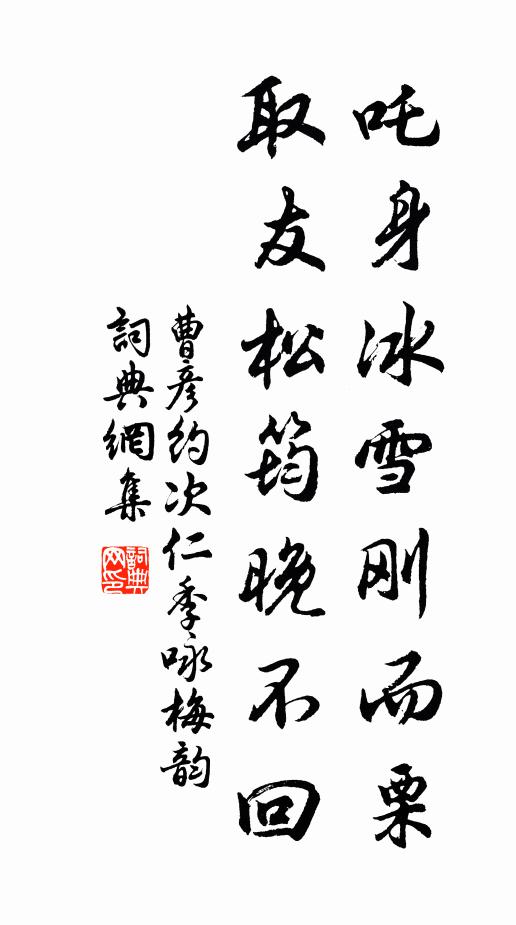 吒身冰雪刚而栗
取友松筠晚不回
曹彦约次仁季咏梅韵
詞典網集
詞典网印